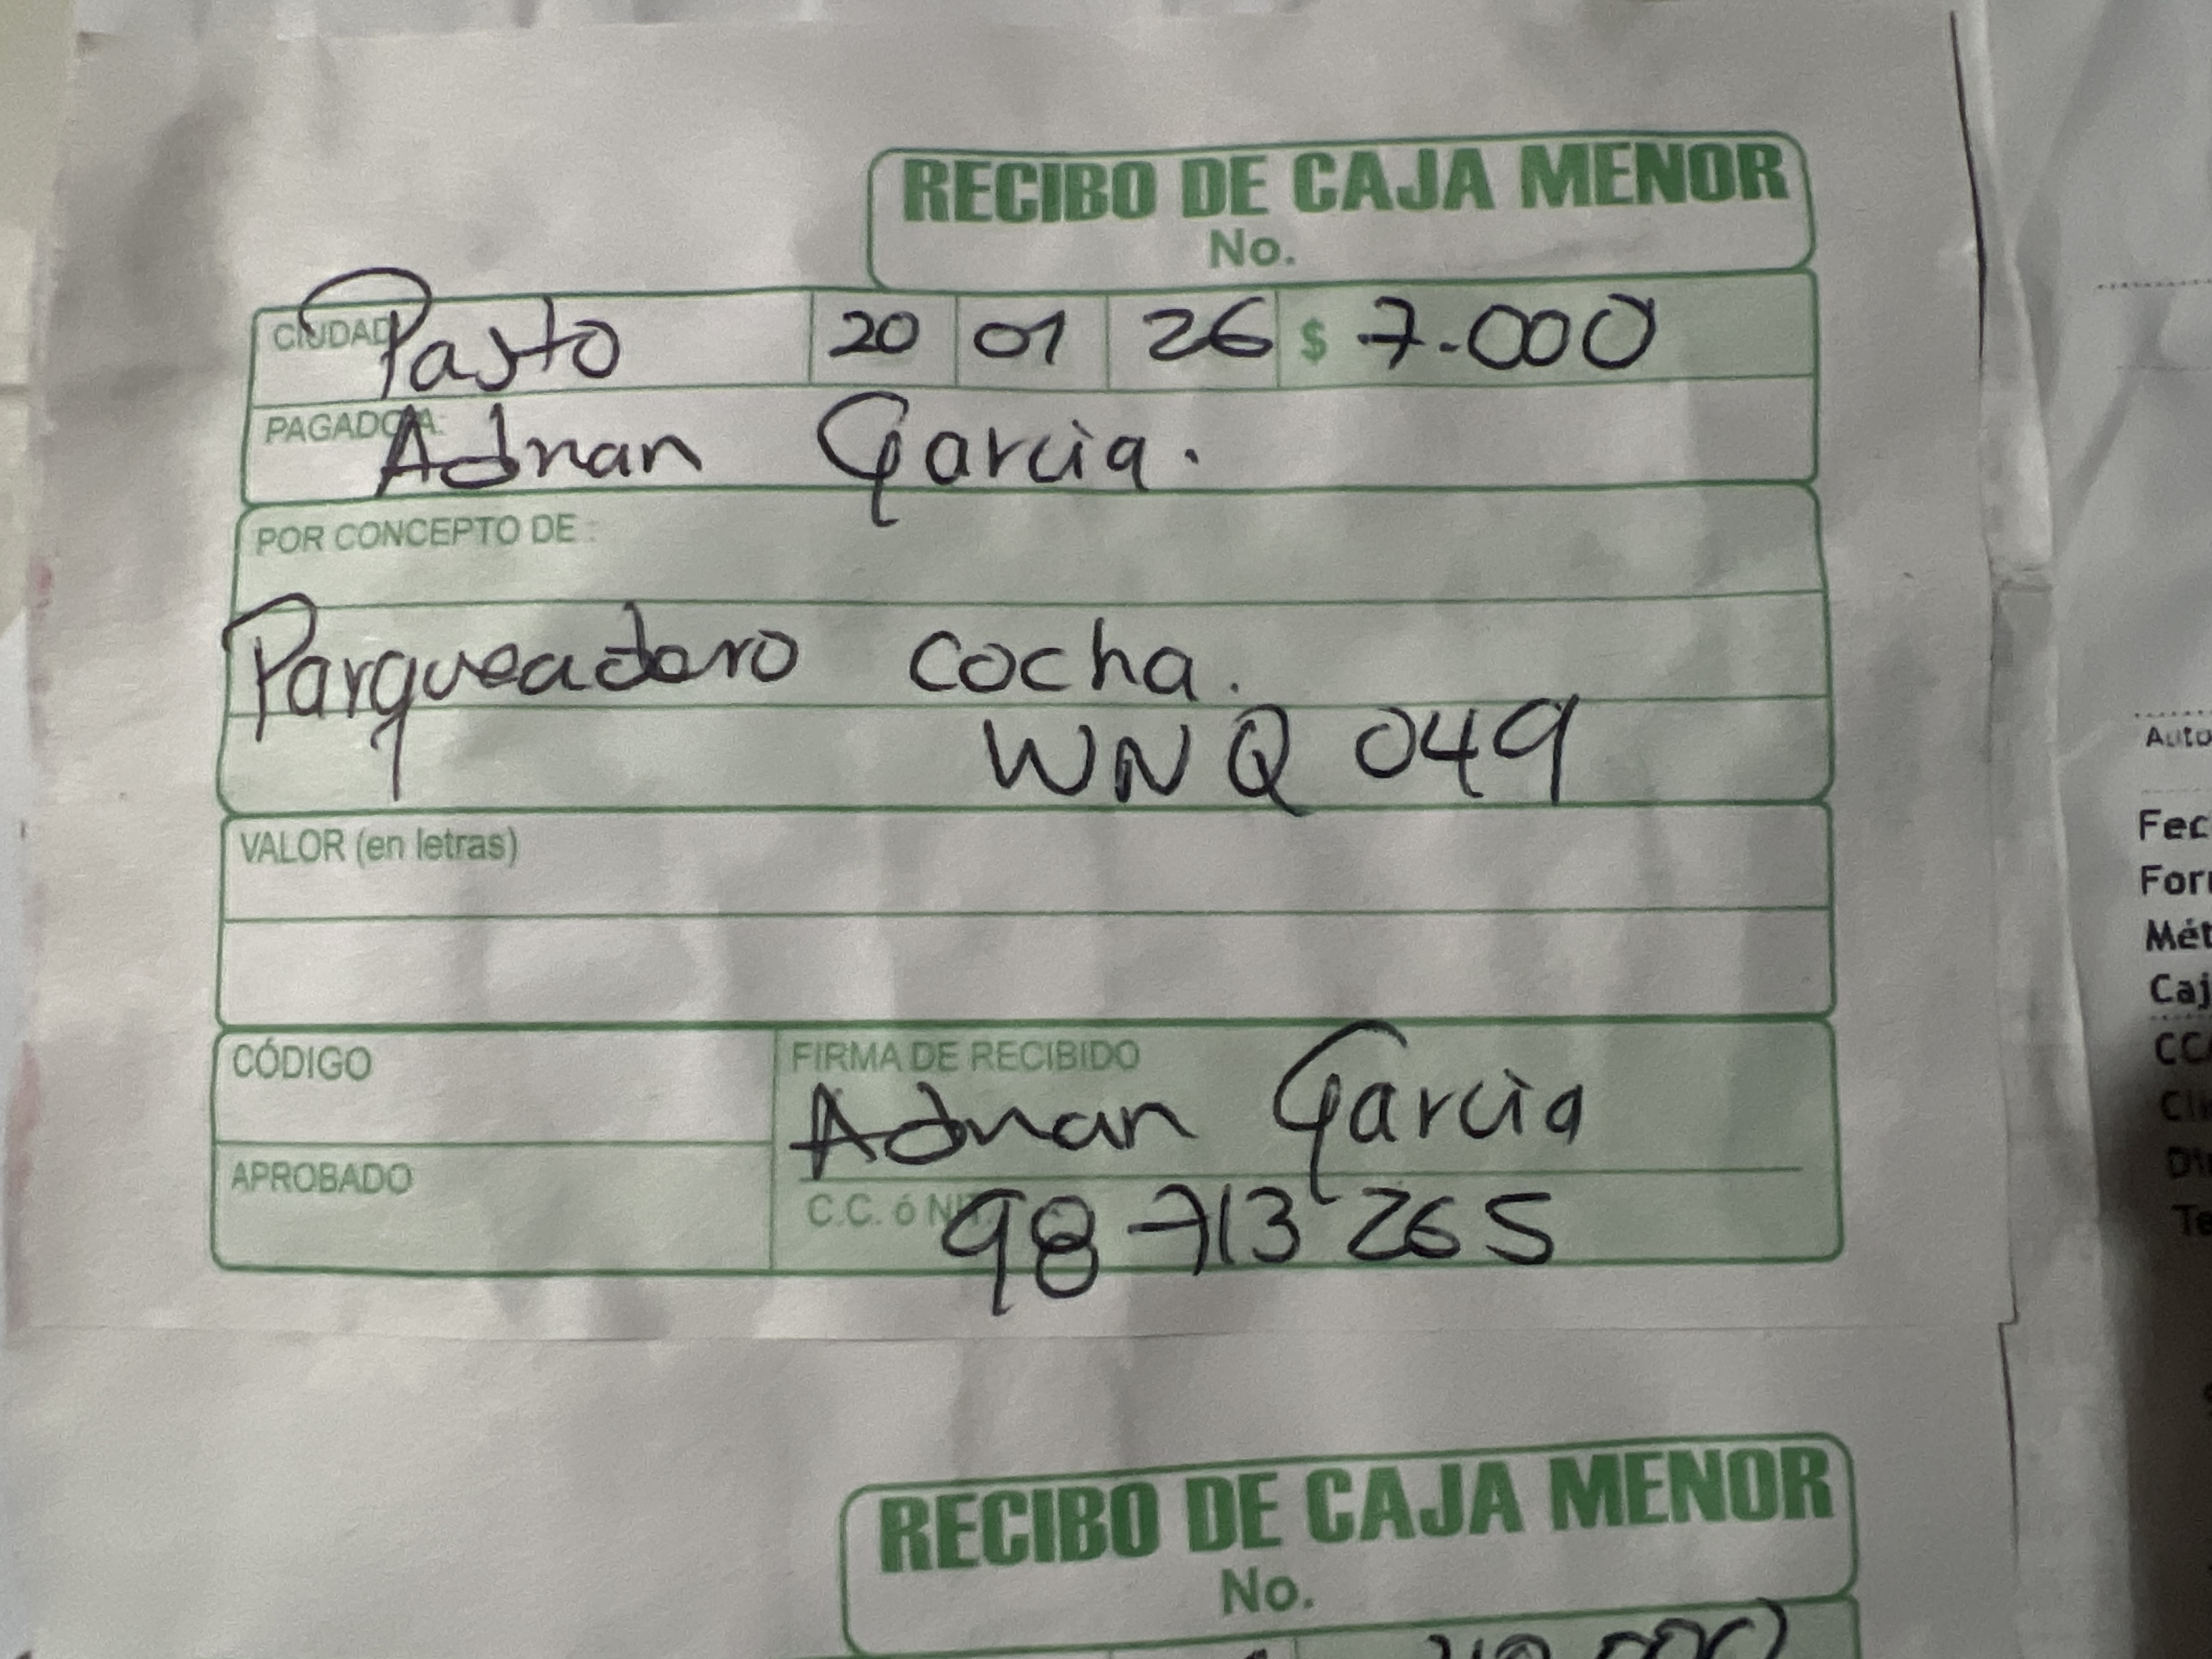 RECIBO DE CAJA MENOR
No.
CIUDAD Pasto 20 01 26 $ 7.000
PAGADO A: Adrian Garcia.
POR CONCEPTO DE :
Parqueadero cocha.
WNQ 049
VALOR (en letras)
CÓDIGO
FIRMA DE RECIBIDO
Adrian Garcia
APROBADO
C.C. ó NIT. 98 713 265
RECIBO DE CAJA MENOR
No.
Auto
Fec
For
Mét
Caj